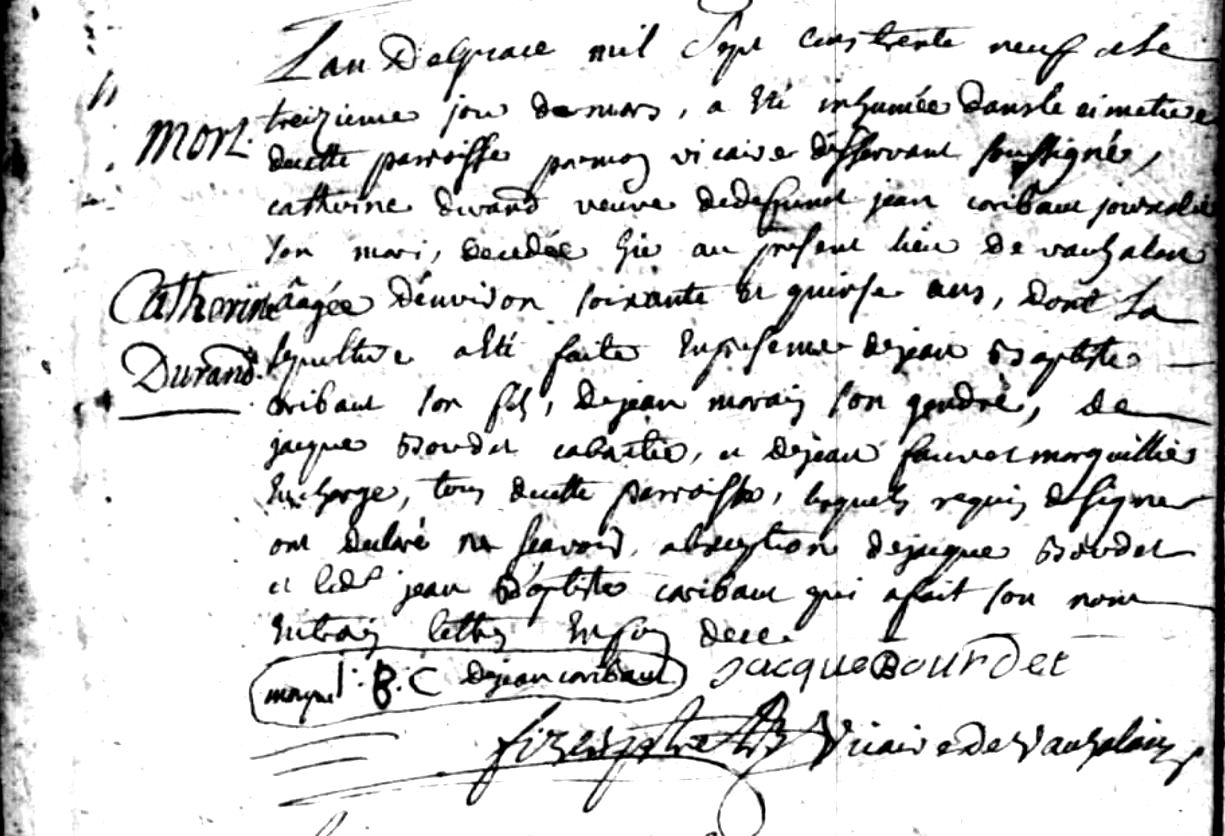 Lan De grace mil Sept cens trente neuf et le
mort. treizieme jour de mars, a été inhumée dans le cimetiere
de cette parroisse par moy vicaire desservant soussigné,
catherine durand veuve de deffunct jean caribaut journalier
son mari, decedée hier au present lieu de vauhalan
Catherine âagée d'environ soixante et quinse ans, dont La
Durand. sepulture a été faite en presence de jean Baptiste
caribaut son fils, de jean morain son gendre, de
jacque Bourdet cabartier, et de jean fauvet marguillier
en charge, tous de cette parroisse, lesquels requis de signer
ont declaré ne sçavoir, a l'exception de jacque Bourdet
et led. jean Baptiste caribaut qui a fait son nom
en trois lettres en foy de ce.
marque J: B: C de jean caribaut jacque Bourdet
Vicaire de Vauhalain